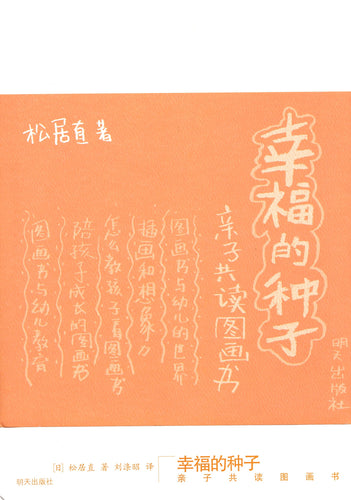 松居直 著
幸福的种子
亲子共读图画书
图画书与幼儿的世界
插画和想象力
怎么教孩子看图画书
陪孩子成长的图画书
图画书与幼儿教育
明天出版社
[日] 松居直 著 刘涤昭 译
幸福的种子
明天出版社
亲子共读图画书